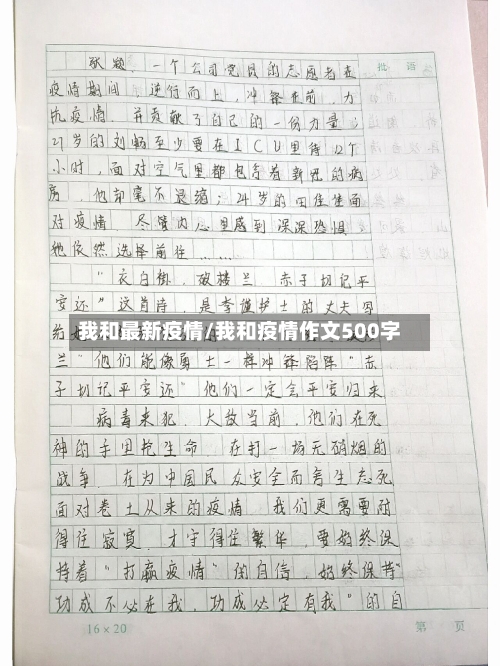 批 语
耿凝，一个公司党员的志愿者在
疫情期间，逆行而上，冲锋在前，力
抗疫情，并贡献了自己的一份力量；
27岁的刘畅至少要在ICU里待12个
小时，面对空气里都包含着新冠的病
房，他却毫不退缩；24岁的田佳佳面
对疫情，尽管内心里感到深深恐惧，
她依然选择前往……
“衣白褂，破楼兰，赤子切记平
安还”这首诗，是李谨护士的丈夫写
我和最新疫情/我和疫情作文500字
兰”他们能像勇士一样冲锋陷阵“赤
子切记平安还”他们一定会平安归来
病毒来犯，大敌当前，他们在死
神的手里抢生命，在打一场无硝烟的
战争，在为中国民众安全而害生忘死
面对卷土从来的疫情，我们更需要耐
得住寂寞，才守得住繁华，要始终保
持着“打赢疫情”的自信，始终保持“
功成不必在我，功成必定有我”的自
16×20
第 页